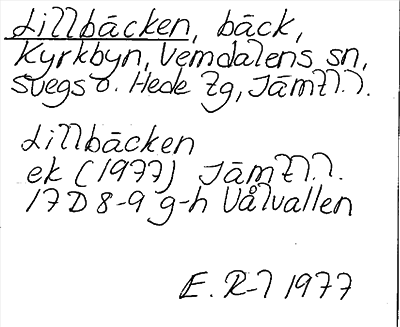 Lillbäcken, bäck,
Kyrkbyn, Vemdalens sn,
Svegs o. Hede tg, Jämtl.l.
Lillbäcken
ek (1977) Jämtl.l.
17D 8-9 g-h Vålvallen
E. R-l 1977